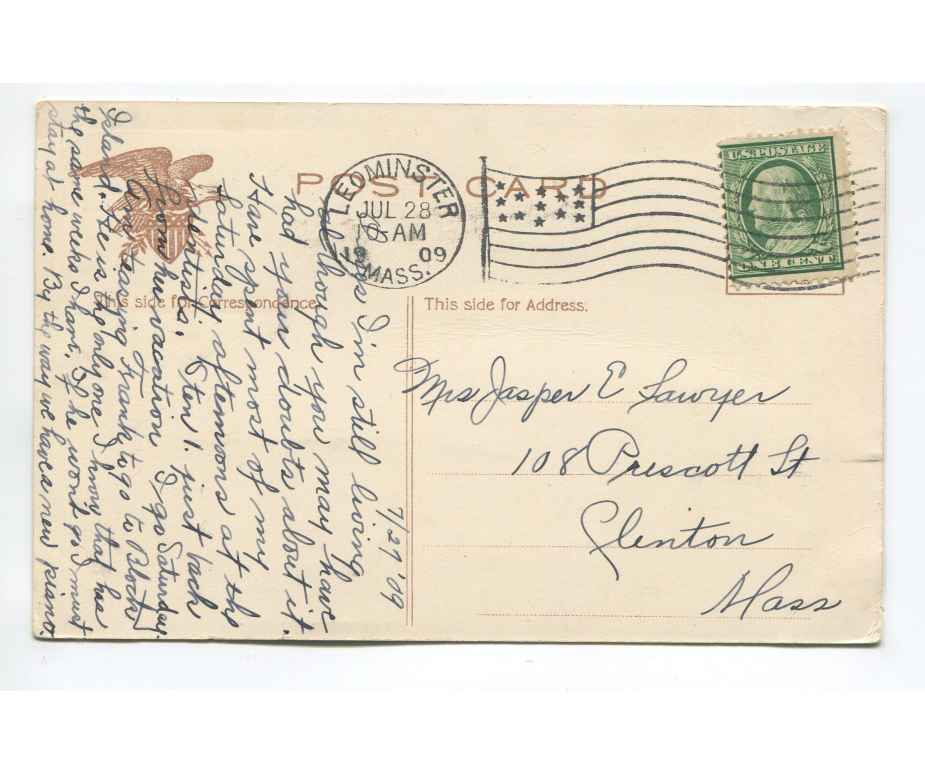 POST CARD
LEOMINSTER
JUL 28
10-AM
1909
MASS.
U.S. POSTAGE
ONE CENT
This side for Correspondence.
This side for Address.
7/27 '09
Yes I'm still living
although you may have
had your doubts about it.
Have spent most of my
Saturday afternoons at the
dentist's. Clen 1. just back
from her vacation I go Saturday.
Am teasing Frank to go to Block
Island. He is the only one I know that has
the same weeks I have. If he won't go I must
stay at home. By the way we have a new piano.
Mrs Jasper E Sawyer
108 Prescott St
Clinton
Mass